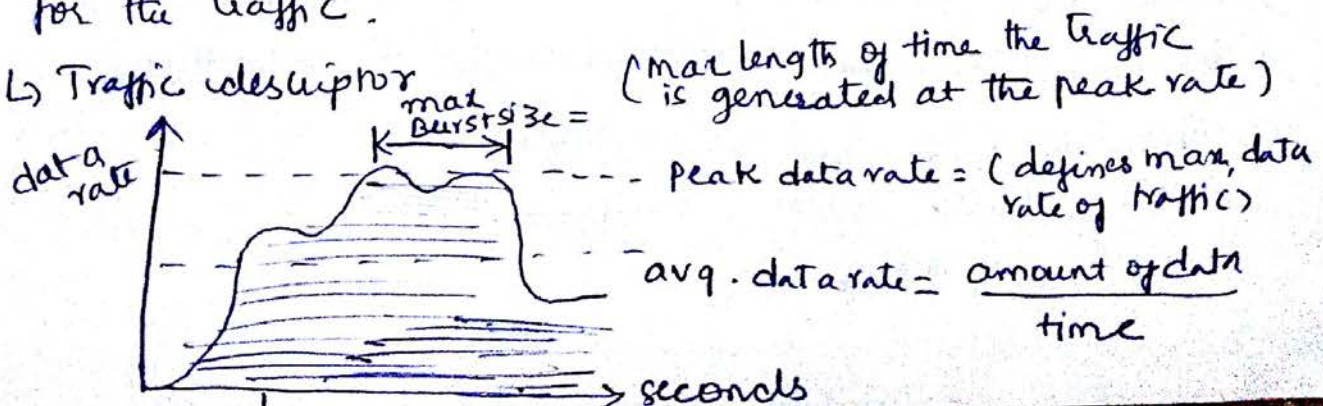 for the traffic.
↳ Traffic descriptor
(max length of time the traffic
is generated at the peak rate)
max
Burst size =
data
rate
Peak data rate = (defines max, data
rate of traffic)
avg. data rate = amount of data
time
seconds